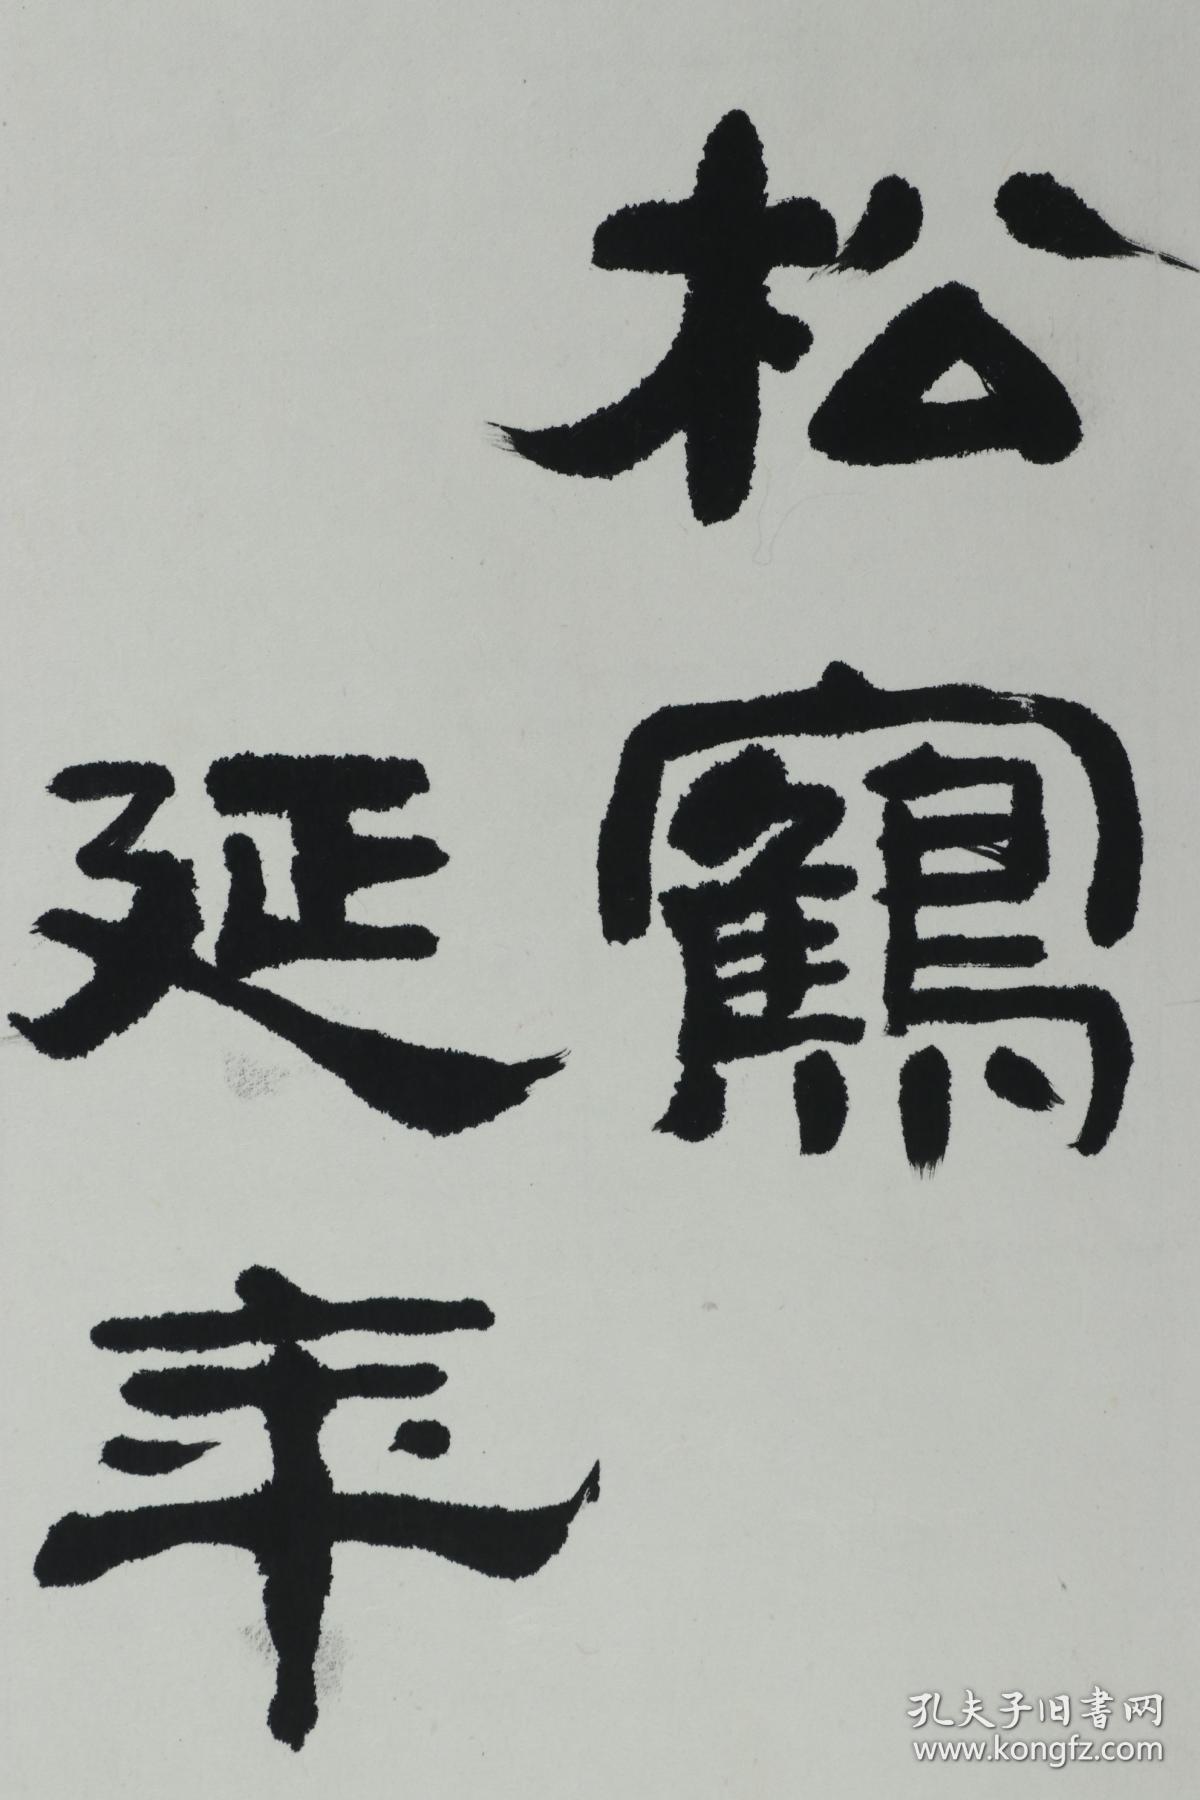 松鶴
延年
孔夫子旧書网
www.kongfz.com